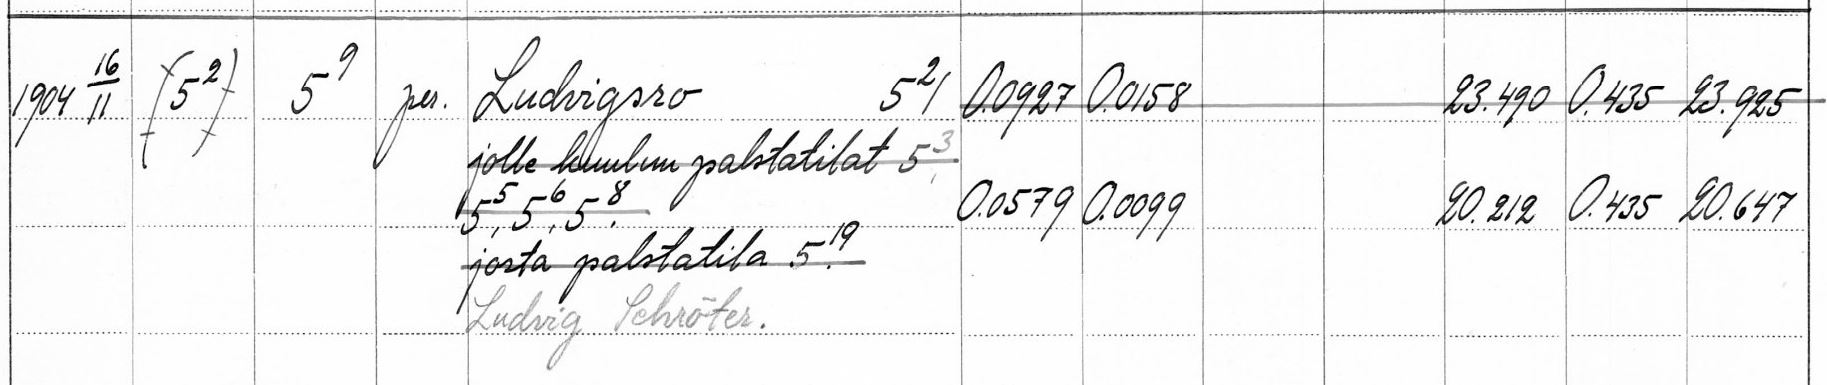 1904 16/11 (5²) 5⁹ per. Ludvigsro 5²¹ 0.0927 0.0158 23.490 0.435 23.925
jolle kuuluu palstatilat 5³,
5⁵, 5⁶, 5⁸. 0.0579 0.0099 20.212 0.435 20.647
josta palstatila 5¹⁹.
Ludvig Schröter.